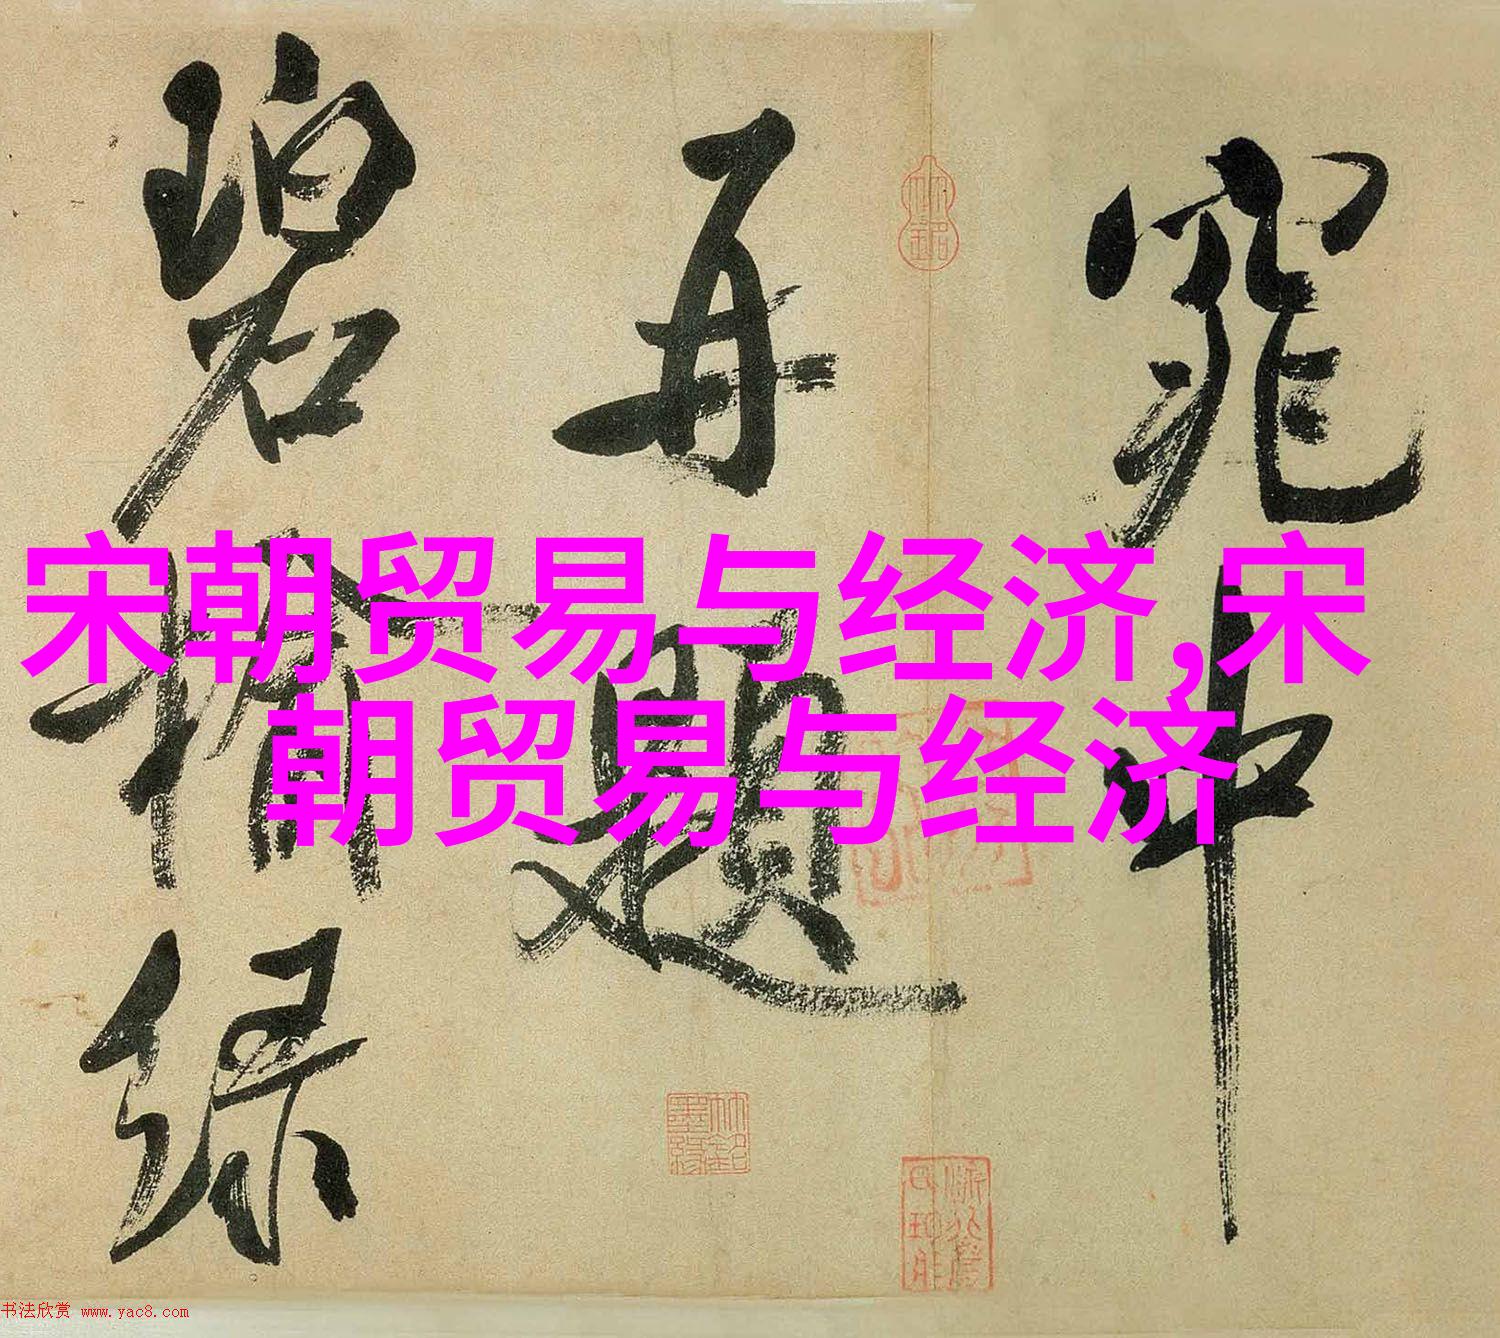 窕中
再题
碧榆绿
宋朝贸易与经济,宋
朝贸易与经济
书法欣赏 www.yac8.com